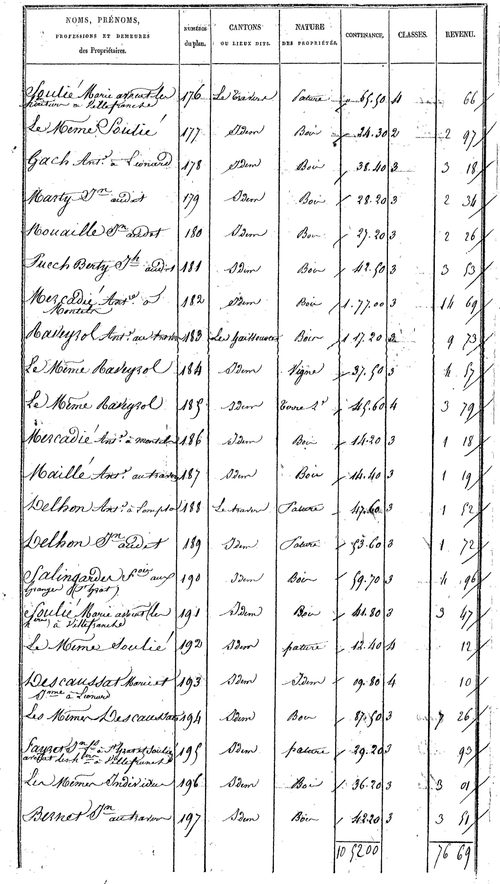 NOMS, PRÉNOMS, PROFESSIONS ET DEMEURES des Propriétaires. | NUMÉROS du plan. | CANTONS OU LIEUX DITS. | NATURE DES PROPRIÉTÉS. | CONTENANCE. | CLASSES. | REVENU.
Soulié Marie à Villefranche 176 Le Travers Pature 65.50 4 66
Le Même Soulié 177 Idem Bois 24.30 2 2 97
Gach Ant. à Lionard 178 Idem Bois 38.40 3 3 18
Marty Jn audit 179 Idem Bois 28.20 3 2 34
Nouaille Jn audit 180 Idem Bois 27.20 3 2 26
Puech Berty audit 181 Idem Bois 42.50 3 3 53
Mercadié Ant.ne à Montels 182 Idem Bois 1.77.00 3 14 69
Raveyrol Ant. au travers 183 Bois 1 17.20 9 73
Le Même Raveyrol 184 Idem Vigne 37.50 3 4 57
Le Même Raveyrol 185 Idem Terre 45.60 4 3 79
Mercadié Ant. à montels 186 Idem Bois 14.20 3 1 18
Maillé Ant. au travers 187 Idem Bois 14.40 3 1 19
Delhon Ant. 188 Le travers Pature 47.60 3 1 52
Delhon Jn audit 189 Idem Pature 53.60 3 1 72
Salingardes 190 Idem Bois 59.70 3 4 96
Soulié Marie à Villefranche 191 Idem Bois 41.80 3 3 47
Le Même Soulié 192 Idem pature 12.40 4 12
Descaussat Marie et à Lionard 193 Idem Idem 19.80 4 10
Les Mêmes Descaussat 194 Idem Bois 87.50 3 7 26
à Villefranche 195 Idem pature 29.20 3 93
Les Mêmes Individus 196 Idem Bois 36.20 3 3 01
Bernet Jn au travers 197 Idem Bois 42.20 3 3 51
10 52 00 76 69